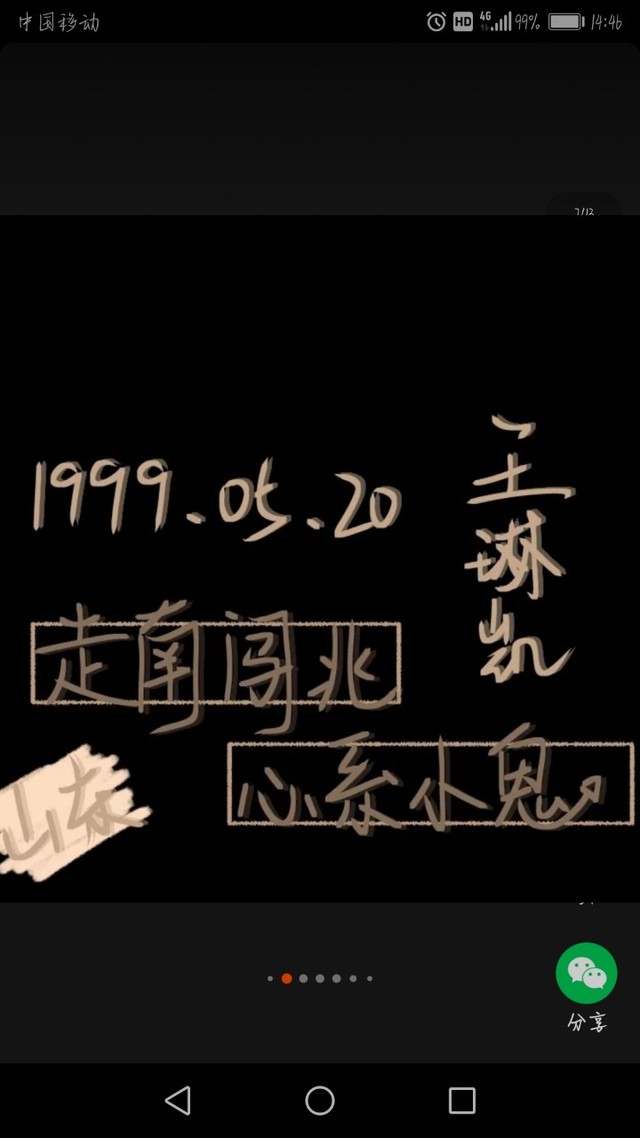 中国移动 HD 4G 99% 14:46
1999.05.20
王琳凯
走南闯北
心系小鬼
山东
分享